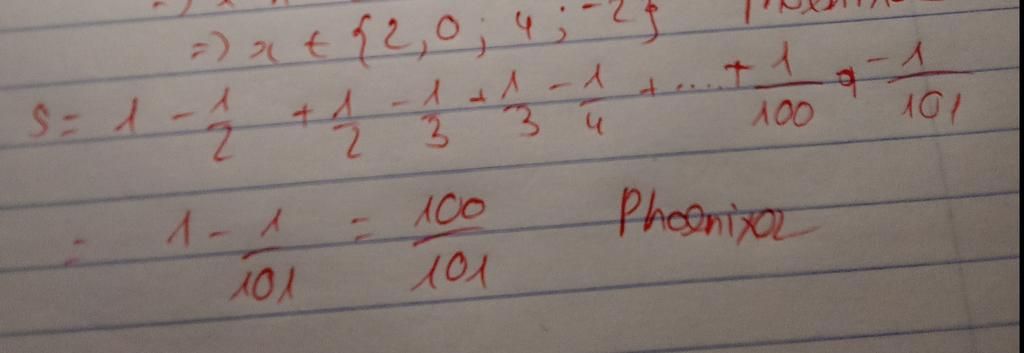 =) x ∈ {2, 0; 4; -2}
S = 1 - 1/2 + 1/2 - 1/3 + 1/3 - 1/4 + .... + 1/100 - 1/101
= 1 - 1/101 = 100/101 Phoenixa